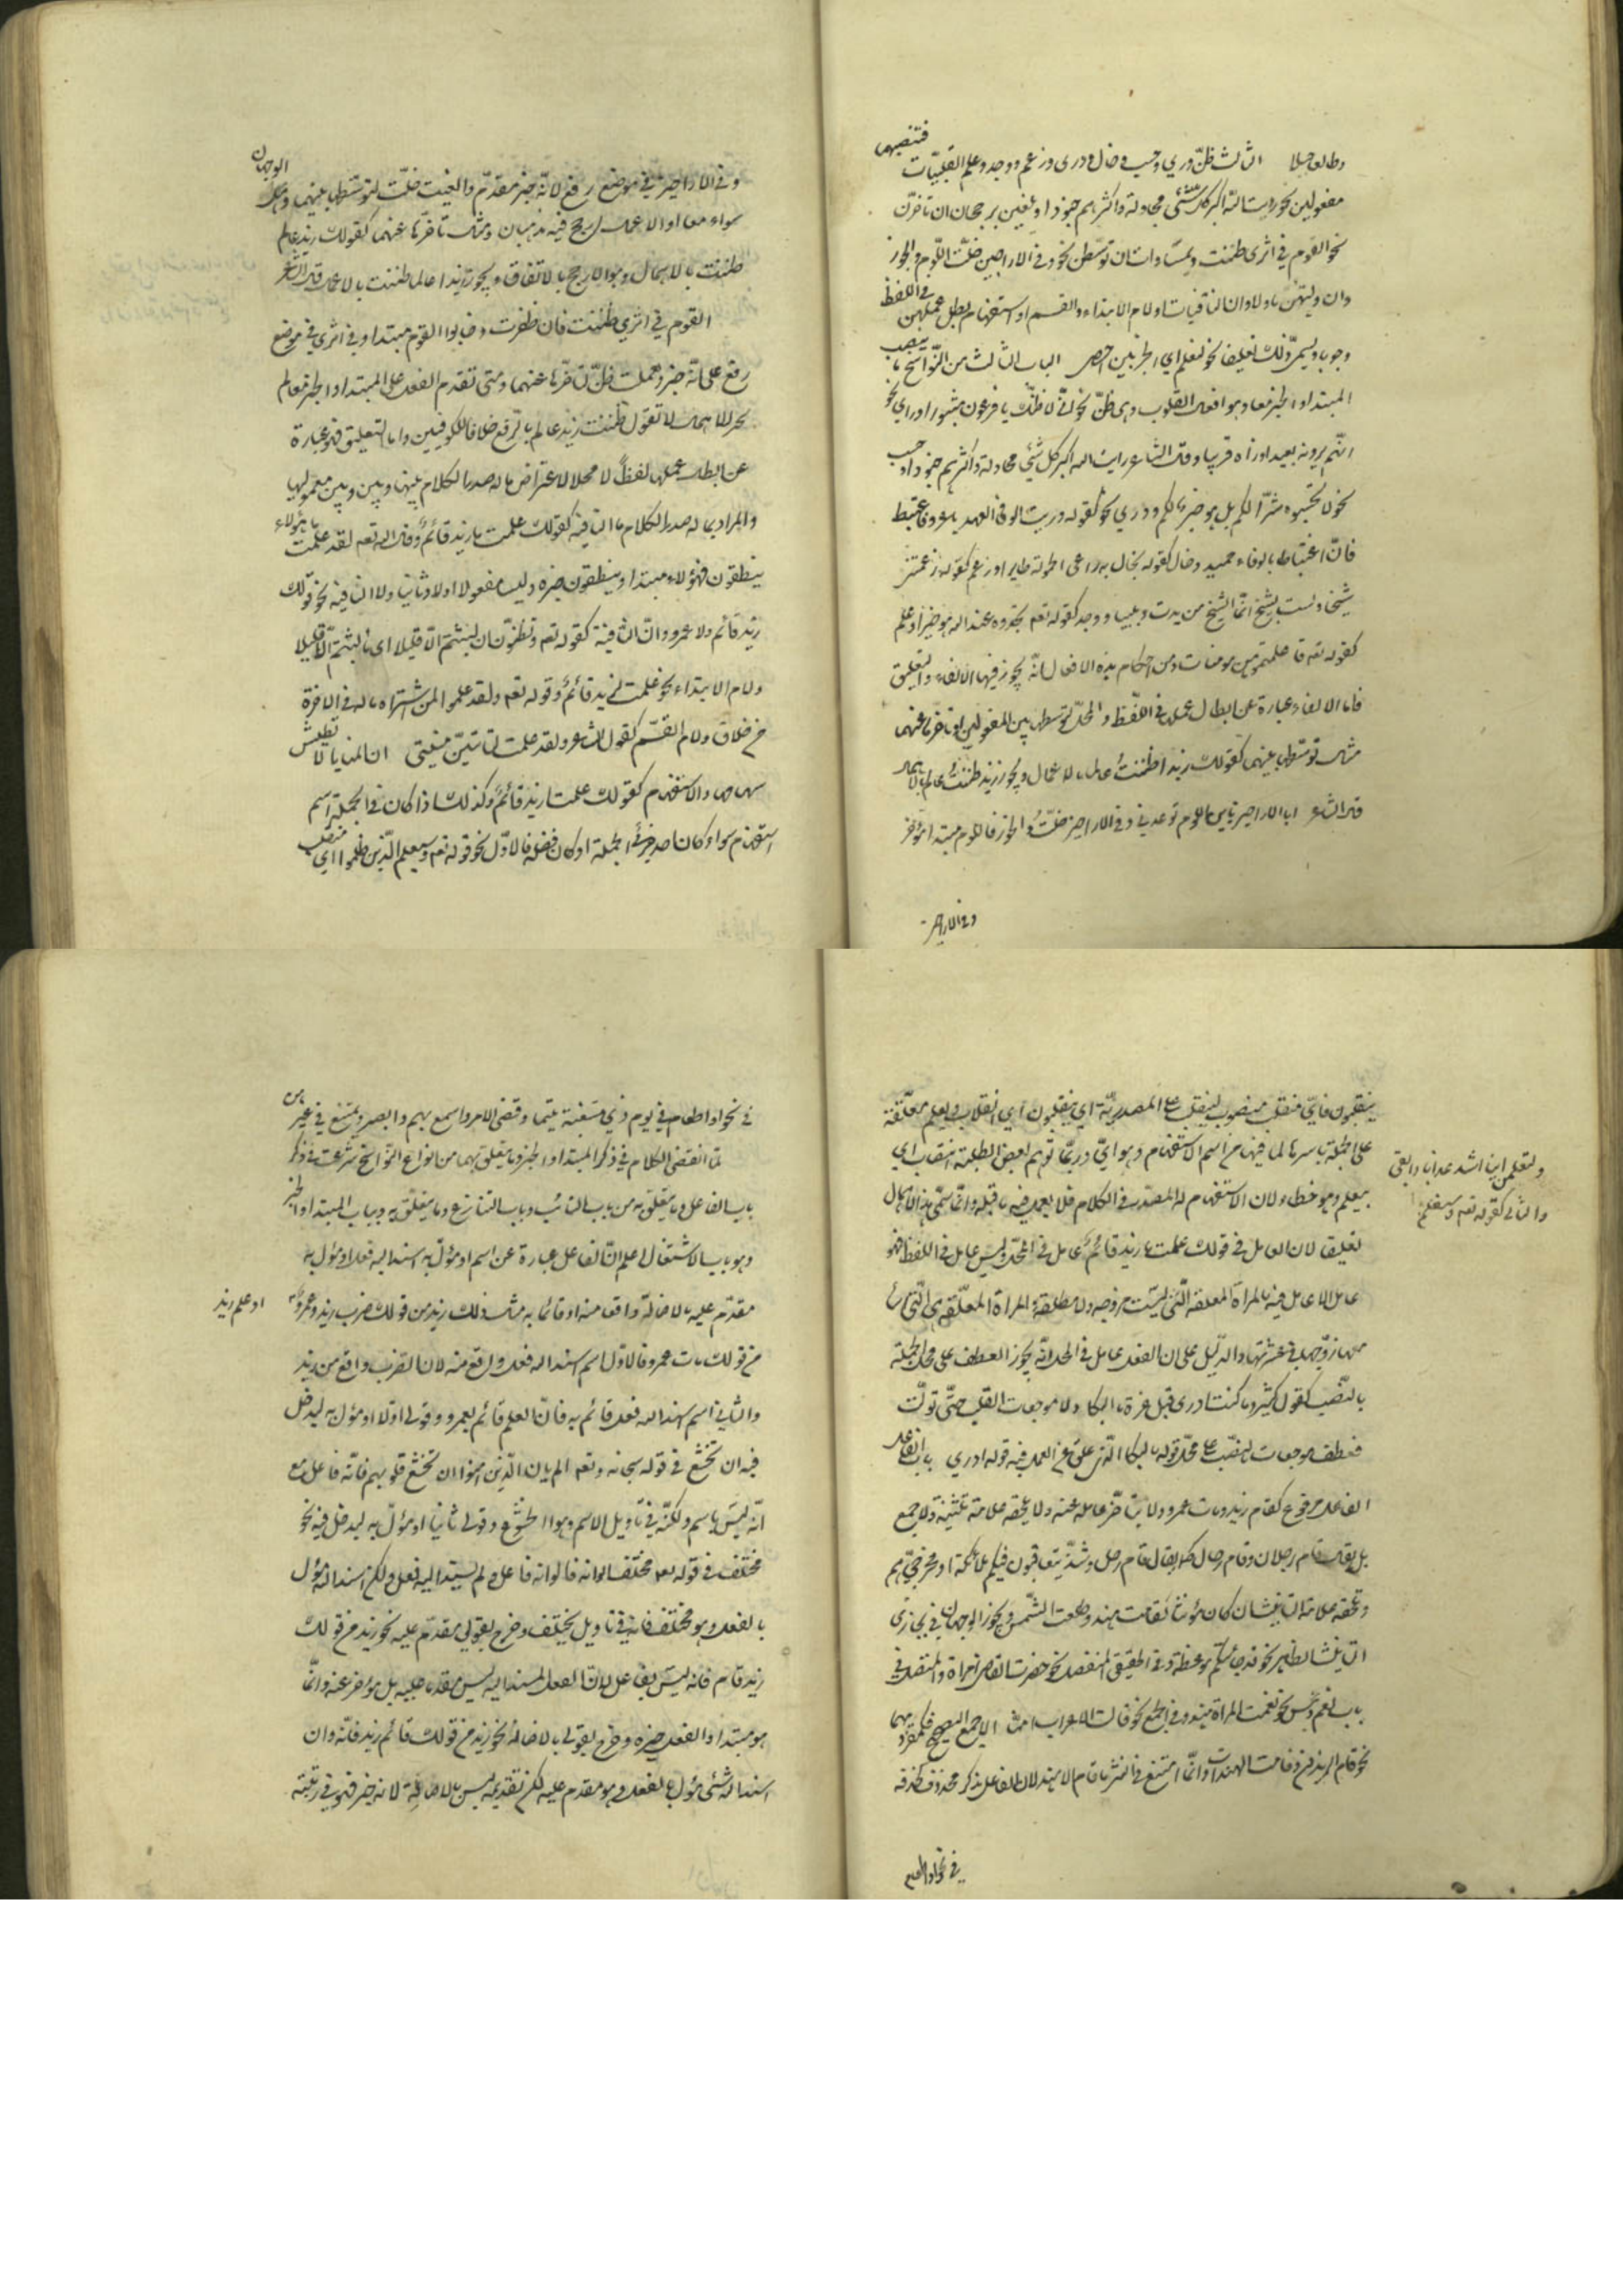 وطالعا جبلا الثالث ظنّ وراى وحسب وخال ودرى وزعم ووجد وعلم القلبيّات فتنصبهما
مفعولين نحو رايت الله اكبر كل شئى محاولة واكثرهم جنودا ويلغين برجحان ان تاخرن
نحو القوم فى اثرى ظننت وبمساواة ان توسّطن نحو وفى الاراجيز خلت اللّوم والخور
وان وليهنّ ما ولا وان النافيات او لام الابتداء والقسم او استفهام بطل عملهن فى اللفظ
وجوبا ويسمّى ذلك تعليقا نحو لنعلم اي الحزبين احصى الباب الثالث من النّواسخ ما ينصب
المبتداء والخبر معا وهو افعال القلوب وهى ظنّ نحو انّى لاظنّك يا فرعون مثبورا وراى نحو
انّهم يرونه بعيدا ونراه قريبا وقال الشاعر رايت الله اكبر كل شئي محاولة واكثرهم جنودا وحسب
نحو لا تحسبوه شرّا لكم بل هو خير لكم ودرى نحو كقوله دريت الوفى العهد يا عرو فاغتبط
فانّ اغتباطا بالوفاء حميد وخال كقوله يخال به راعى الحمولة طايرا وزعم كقوله زعمتنى
شيخا ولست بشيخ انّما الشيخ من يدب دبيبا ووجد كقوله تعه تجدوه عند الله هو خيرا وعلم
كقوله تعه فان علمتموهن مومنات ومن احكام هذه الافعال انّه يجوز فيها الالغاء والتعليق
فاما الالغاء عبارة عن ابطال عملها فى اللّفظ والمحلّ لتوسطها بين المفعولين او تاخّرها عنهما
مثال توسّطها بينهما كقولك زيدا ظننتُ عالما بالاعمال ويجوز زيد ظننتُ عالم بالاهمال
قال الشاعر ابا الاراجيز يا بن اللوم توعدنى وفى الاراجيز خلتُ اللوم والخور فاللوم مبتدا مؤخّر
وفى الاراجيز
وفى الاراجيز فى موضع رفع لانّه خبر مقدّم والغيت خلت لتوسّطها بينهما وهل الوجهان
سواء معا او الاعمال ارجح فيه مذهبان ومثال تاخّرها عنهما كقولك زيد عالم
ظننت بالاهمال وهو الارجح بالاتفاق ويجوز زيدا عالما ظننت بالاعمال قال الشاعر
القوم فى اثري ظننت فان ظفرت وخابوا القوم مبتدا وفى اثري فى موضع
رفع على انّه خبر واهملت ظنّ لتاخّرها عنهما ومتى تقدم الفعل على المبتداء والخبر معا لم
يجز الاهمال لا تقول ظننت زيد عالم بالرّفع خلافا للكوفيين واما التعليق فهو عبارة
عن ابطال عملها لفظاً لا محلا لاعتراض ما له صدر الكلام بينها وبين وبين معموليها
والمراد بما له صدر الكلام ما النافية كقولك علمت ما زيد قائمٌ وقال الله تعه لقد علمت ما هؤلاء
ينطقون فهؤلاء مبتدا وينطقون خبره وليس مفعولا اولا وثانيا ولا النافية نحو قولك
زيد قائم ولا عمرو وان النافية كقوله تعه وتظنّون ان لبثتم الّا قليلا اى ما لبثتم الّا قليلا
ولام الابتداء نحو علمت لزيد قائمٌ وقوله تعه ولقد علموا لمن اشتراه ما له فى الاخرة
من خلاق ولام القسم كقول الشاعر ولقد علمت لتاتينّ منيتى ان المنايا لا تطيش
سهامها والاستفهام كقولك علمت ازيد قائمٌ وكذلك اذا كان فى الجملة اسم
استفهام سواء كان احد جزئي الجملة او كان فضلة فالاوّل نحو قوله تعه وسيعلم الّذين ظلموا اي منقلب
ينقلبون فايّ منقلب منصوب بينقلب على المصدريّة اي ينقلبون اي انقلاب ويعلم معلّقة
على الجملة باسرها لما فيها من اسم الاستفهام وهو ايّ وربّما توهم لبعض الطلبة انتصاب اي
بيعلم وهو خطاء لان الاستفهام له الصدر فى الكلام فلا يعمل فيه ما قبله وانّما سمّى هذا الاهمال
تعليقا لان العامل فى قولك علمت ما زيد قائمٌ عامل فى المحلّ وليس عامل فى اللفظ فهو
عامل لا عامل فيه بالمراة المعلقة الّتى ليست مزوجه ولا مطلقة والمراة المعلّقة هى الّتى اساء
معها زوّجها فى عشرتها والدّليل على ان الفعل عامل فى المحل انّه يجوز العطف على محل الجملة
بالنّصب كقول كثير وما كنت ادرى قبل عزة ما البكا ولا موجعات القلب حتّى تولّت
فعطف موجعات بالنّصب على محلّ قوله ما البكا الّذى علق عن العمل فيه قوله ادرى باب الفاعل
الفاعل مرفوع كقام زيد ومات عمرو ولا يتاخّر عامله عنه ولا يلحقه علامة تثنية ولا جمع
بل يقال قام رجلان وقام رجال كما يقال قام رجل وشذّ يتعاقبون فيكم ملائكة او مخرجيّ هم
وتلحقه علامة التانيث ان كان مؤنثا كقامت هند وطلعت الشّمس ويجوز الوجهان فى مجازى
التانيث الظاهر نحو قد جائتكم موعظة وفى الحقيقى المنفصل نحو حضرت القاضى امراة والمتصل فى
باب نعم وبئس نحو نعمت المراة هند وفى الجمع نحو قالت الاعراب امنّا الا جمع التصحيح فكمفردهما
نحو قام الزيدون وقامت الهندات وانّما امتنع فى النثر ما قام الا هند لان الفاعل مذكر محذوف كحذفه
ولتعلمن اينا اشد عذابا وابقى
والثانى كقوله تعه وسيعلم
فى نحو او اطعام
فى نحو او اطعام فى يوم ذي مسغبة يتيما وقضى الامر واسمع بهم وابصر ويمتنع فى غيرهن
لمّا انقضى الكلام فى ذكر المبتداء والخبر وما يتعلّق بهما من انواع النّواسخ شرعت فى ذكر
باب الفاعل وما يتعلّق به من باب النّائب وباب التنازع وما يتعلّق به وبباب المبتداء والخبر
وهو باب الاشتغال اعلم انّ الفاعل عبارة عن اسم او مؤوّل به اسند اليه فعل او مؤل به
مقدّم عليه بالاصالة واقعا منه او قائما به مثال ذلك زيد من قولك ضرب زيد عمروٌ
او علم زيد
من قولك مات عمرو فالاوّل اسم اسند اليه فعل واقع منه لان الضّرب واقع من زيد
والثانى اسم اسند اليه فعل قائم به فانّ العلم قائم بعمرو وقولى اوّلا او مؤل به ليدخل
فيه ان تخشع فى قوله سبحانه وتعه الم يان للّذين امنوا ان تخشع قلوبهم فانّه فاعل مع
انّه ليس باسم ولكنّه فى تاويل الاسم وهو الخشوع وقولى ثانيا او مؤوّل به ليدخل فيه نحو
مختلف فى قوله تعه مختلف الوانه فالوانه فاعل ولم يسند اليه فعل ولكن اسند اليه مؤل
بالفعل وهو مختلف فانّه فى تاويل يختلف وخرج بقولى مقدّم عليه نحو زيد من قولك
زيد قام فانه ليس بفاعل لانّ الفعل المسند اليه ليس مقدّما عليه بل مؤخر عنه وانّما
هو مبتدا والفعل خبره وخرج بقولى بالاصالة نحو زيد من قولك قائم زيد فانّه وان
اسند اليه شئى مؤل بالفعل وهو مقدم عليه لكن تقديمه ليس بالاصالة لانه خبر فهو فى رتبته